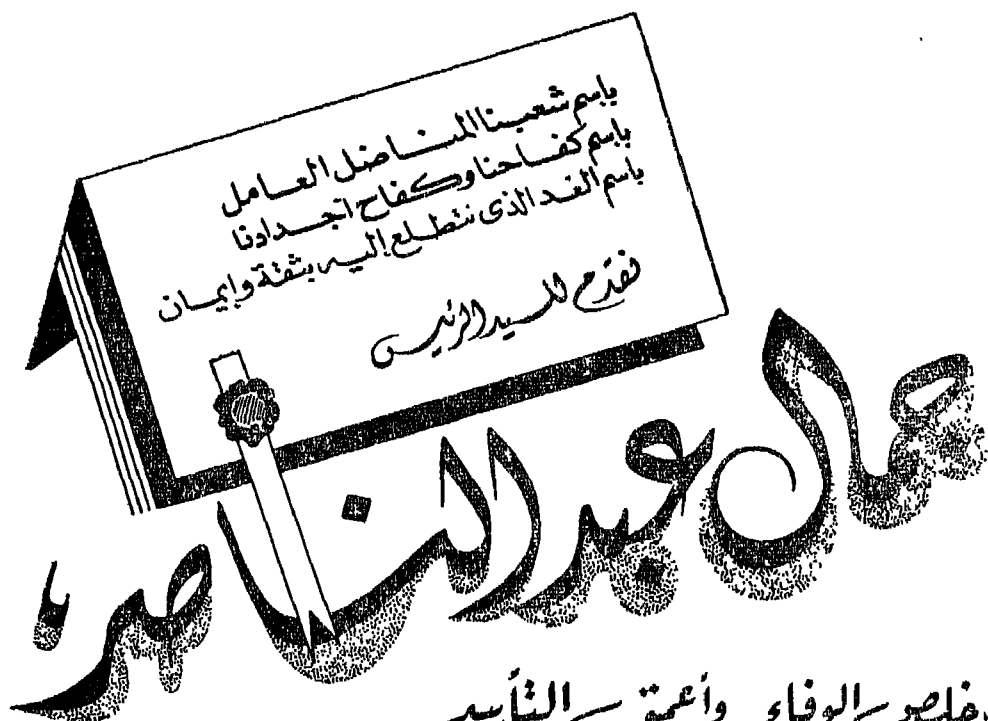 باسم شعبنا المناضل العامل
باسم كفاحنا وكفاح أجدادنا
باسم الغد الذى نتطلع إليه بثقة وإيمان
نقدم للسيد الرئيس
جمال عبد الناصر
الوفاء وأعمق التأييد